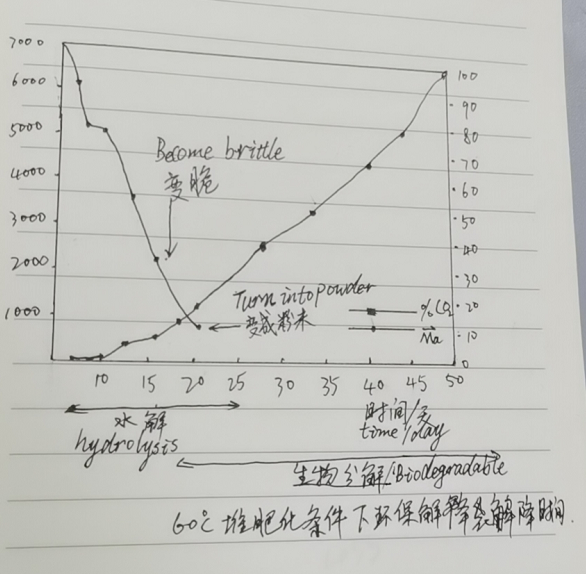 7000
6000
5000
4000
3000
2000
1000
100
90
80
70
60
50
40
30
20
10
0
Become brittle
变脆
Turn into powder
变成粉末
%CO2
Ma
10 15 20 25 30 35 40 45 50
水解
hydrolysis
时间/天
time/day
生物分解/Biodegradable
60℃堆肥化条件下环保解降袋解降时间